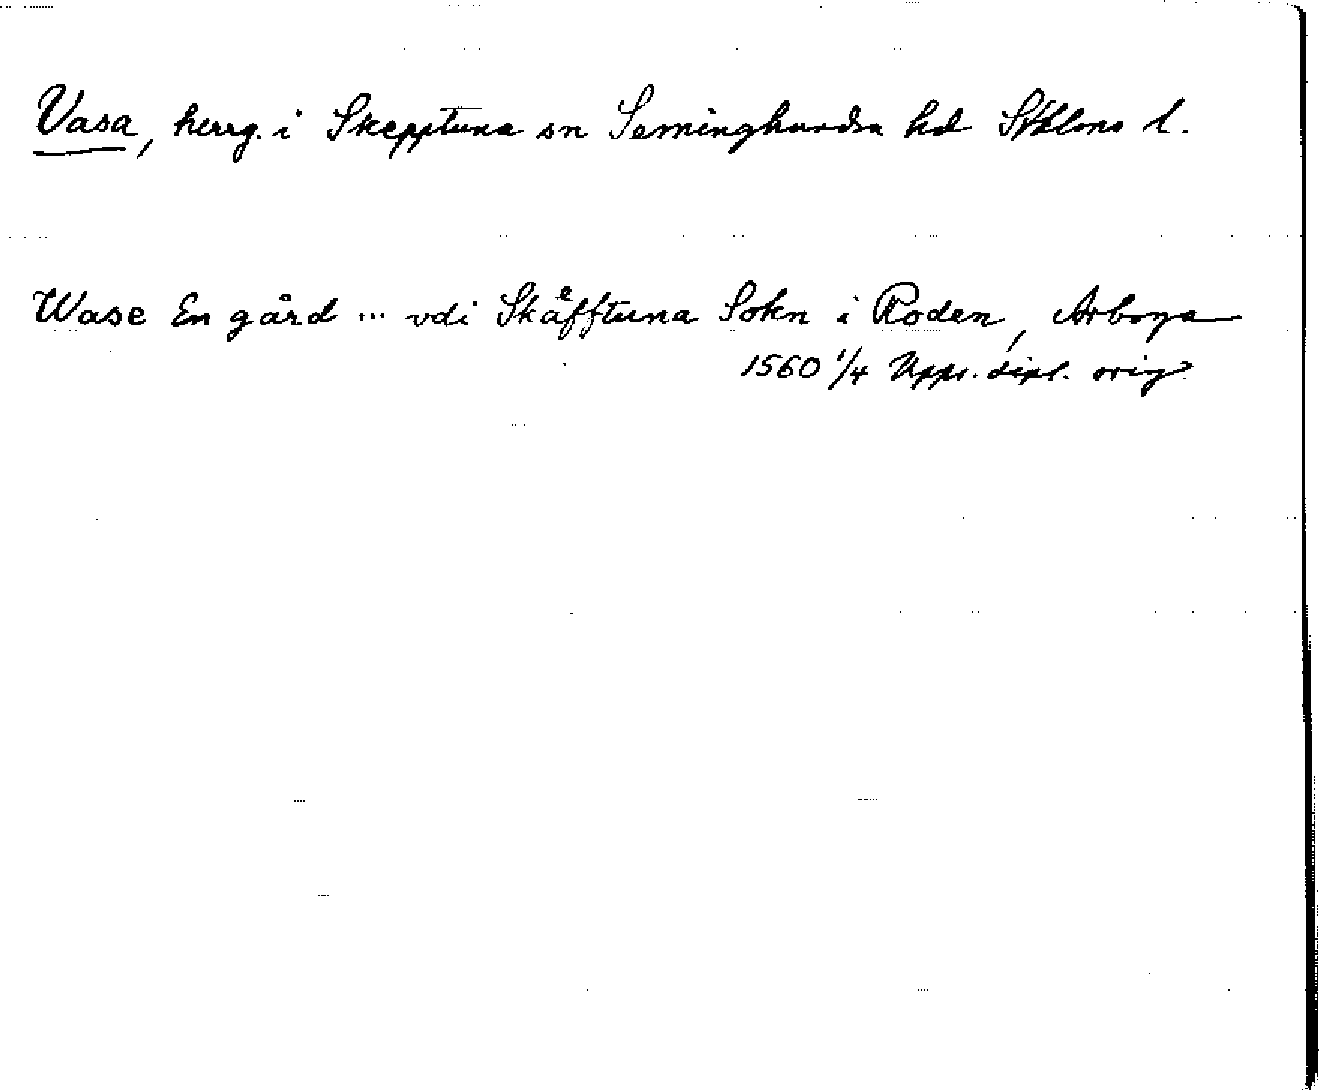 Vasa, herrg. i Skepptuna sn Seminghundra hd Sthlms l.
Wase En gård ... vdi Skåfftuna Sokn i Roden, Arboga
1560 1/4 Upps. dipl. orig.